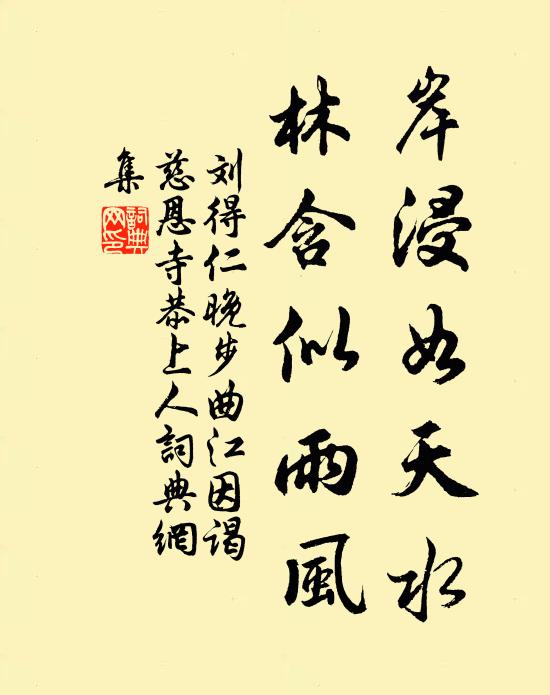 岸浸如天水
林含似雨風
刘得仁晚步曲江因谒
慈恩寺恭上人詞典網
集
詞典
网印